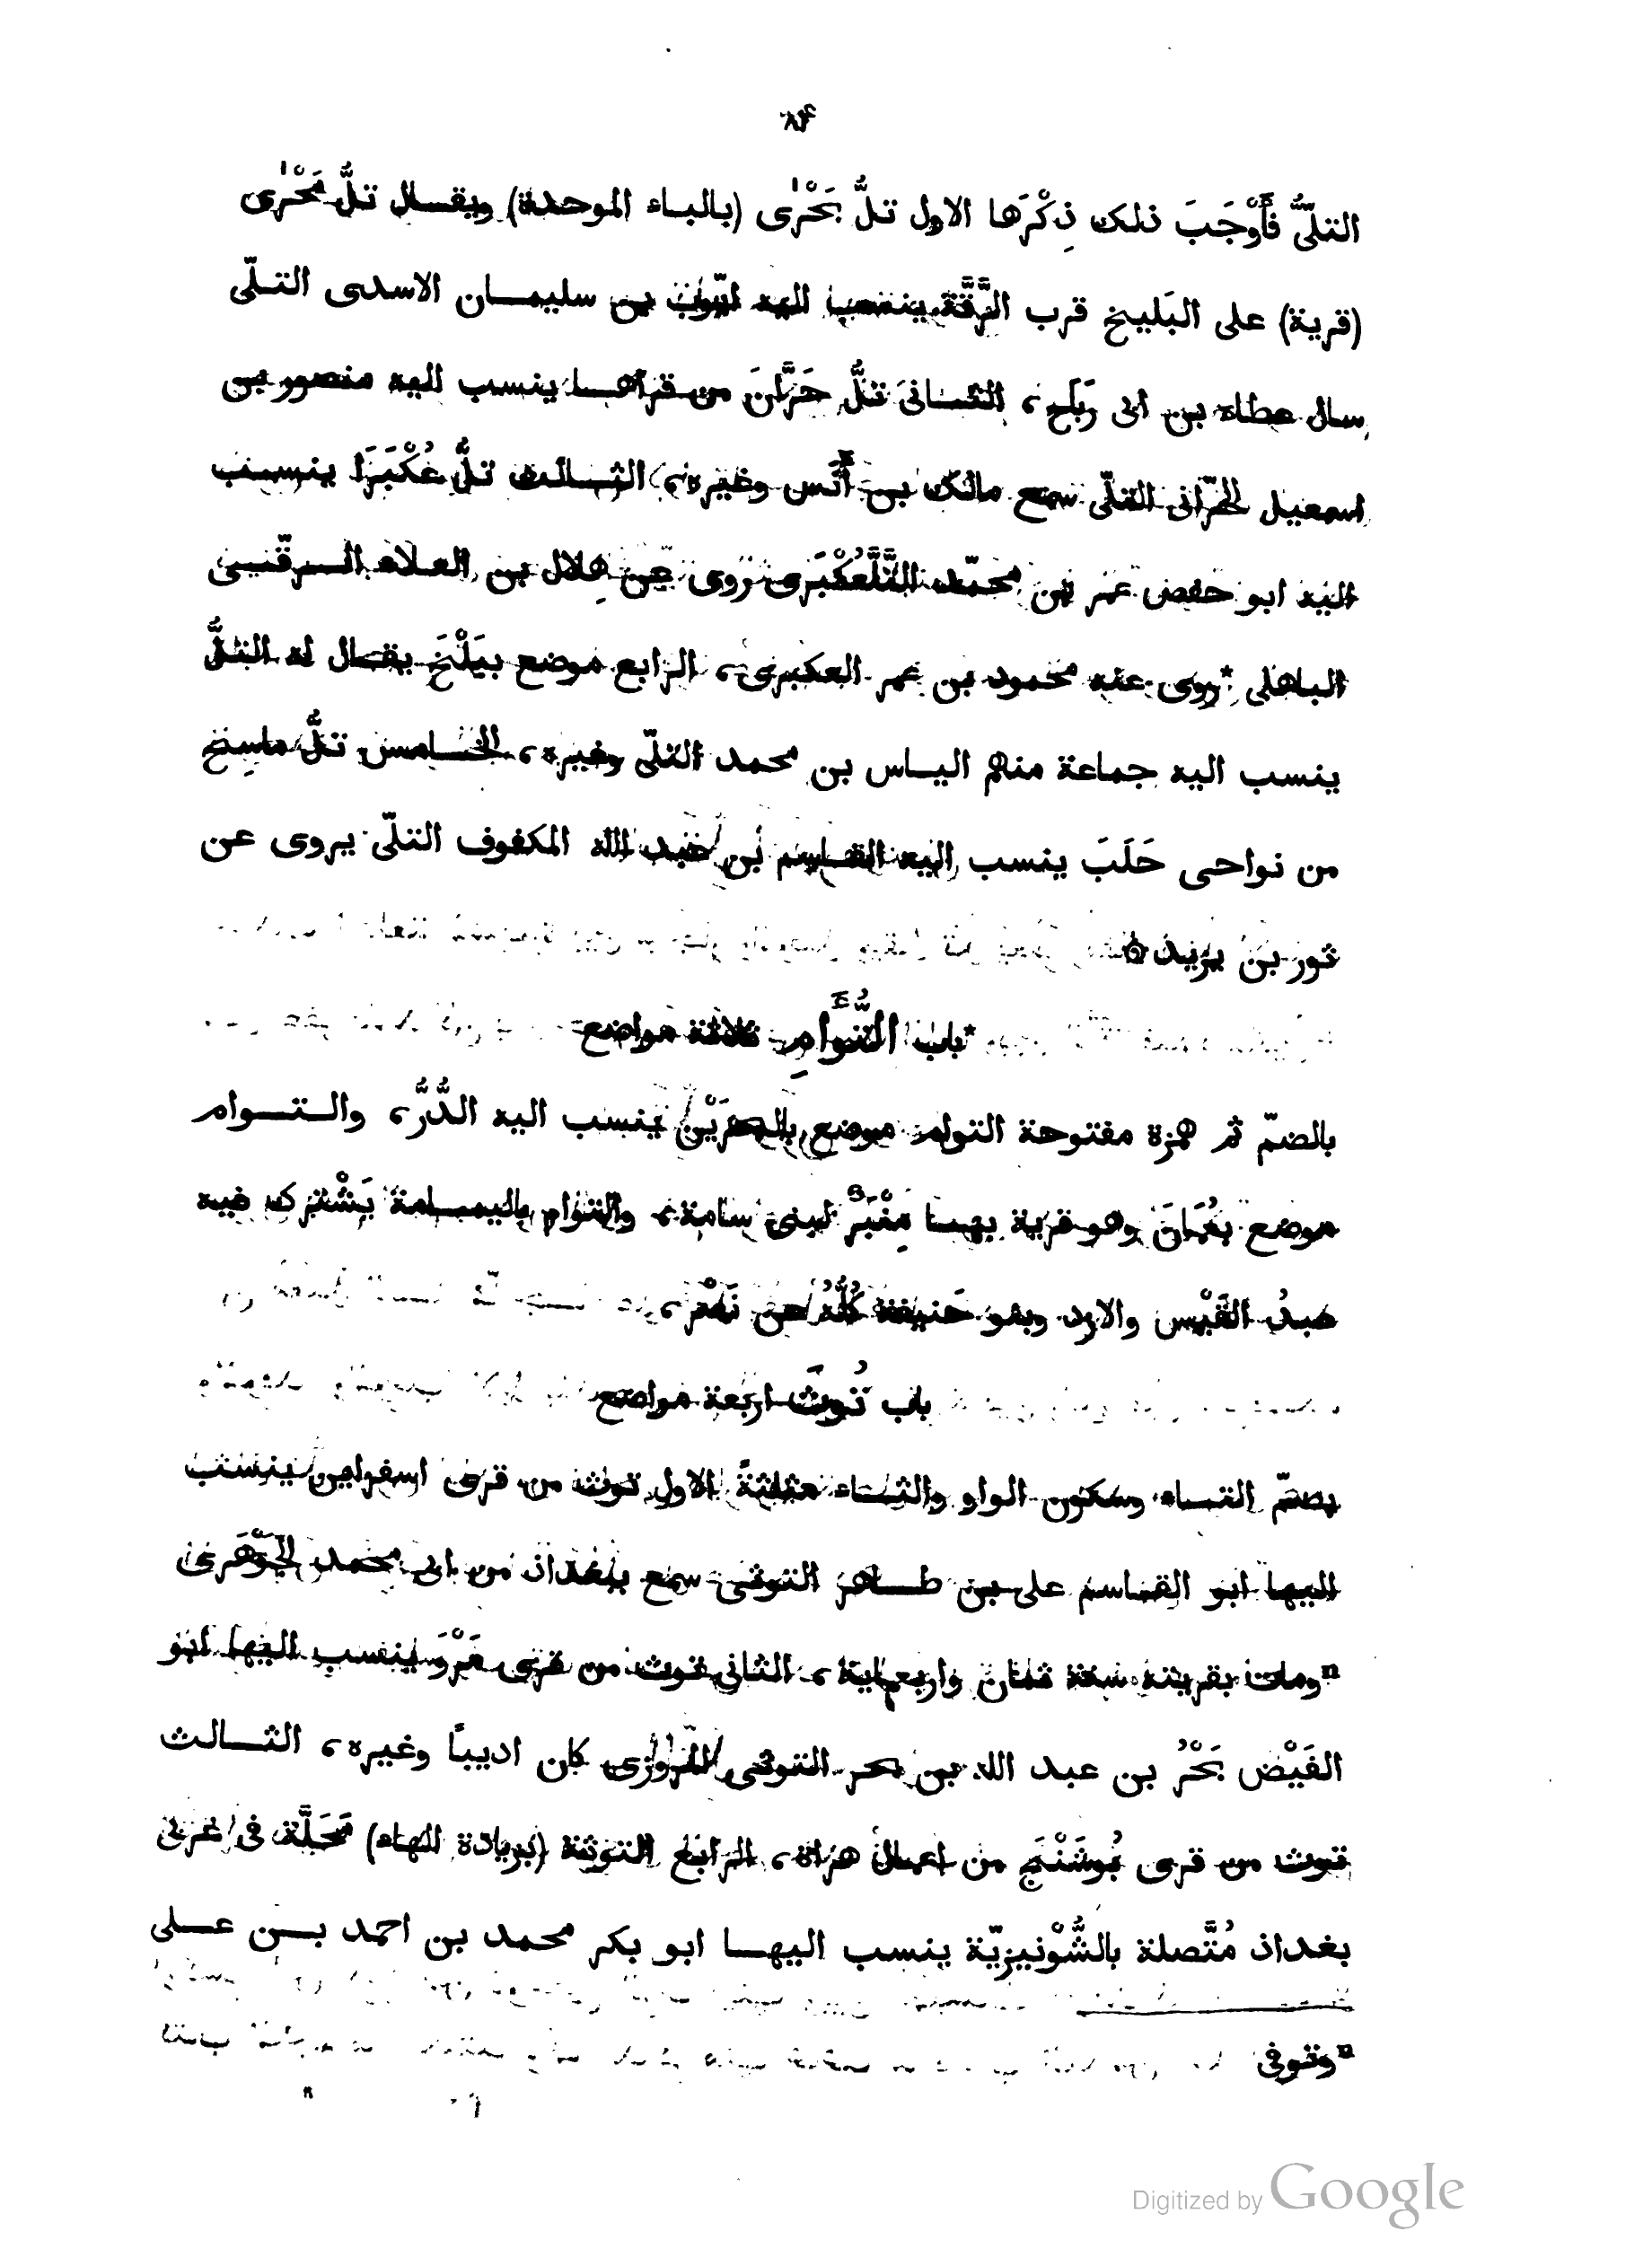 ٨۴
التلّىُّ فَأَوْجَبَ ذلك ذِكْرَها الاول تلُّ بَحْرَى (بالباء الموحدة) ويقال تلُّ مَحْرَى
(قرية) على البَليخ قرب الرَّقَّة ينسب اليه ايّوب بن سليمان الاسدى التلّى
سال عطاء بن ابى رَبَاح، الثانى تلُّ حَرَّانَ من قراها ينسب اليه منصور بن
اسمعيل الحرّانى التلّى سمع مالك بن أَنَس وغيره، الثالث تلُّ عُكْبَرَا ينسب
اليه ابو حفص عمر بن محمّد التَّلَّعُكْبَرى روى عن هِلال بن العلاء الرقّى
الباهلى *روى عنه محمود بن عمر العكبرى، الرابع موضع ببَلْخَ يقال له التلُّ
ينسب اليه جماعة منهم الياس بن محمد التلّى وغيره، الخامس تلُّ ماسِح
من نواحى حَلَبَ ينسب اليه القاسم بن عبد الله المكفوف التلّى يروى عن
ثور بن يزيد ۞
*باب التُّوَامِ ثلاثة مواضع
بالضمّ ثم همزة مفتوحة التوام موضع بالبحرَيْن ينسب اليه الدُّرُّ، والتوام
موضع بعُمَانَ وهو قرية بها مِنْبَرٌ لبنى سامة، والتوام باليمامة يَشْترك فيه
عبدُ القَيْس والازد وبنو حَنيفة كُلُّهُ عن نَصْر،
باب تُوثَ اربعة مواضع
بضمّ التاء وسكون الواو والثاء مثلثةً الاول توث من قرى اسفراين ينسب
اليها ابو القاسم على بن طاهر التوثى سمع ببغداد من ابى محمد الجَوْهَرى
ⁿومات بقريته سنة ثمان واربعماية، الثانى توث من قرى مَرْوَ ينسب اليها ابو
الفَيْض بَحْرُ بن عبد الله بن بحر التوثى المروزى كان اديبًا وغيره، الثالث
توث من قرى بُوشَنْجَ من اعمال هراة، الرابع التوثة (بزيادة الهاء) مَحَلَّة فى غربى
بغداد مُتَّصلة بالشُّونيزيّة ينسب اليها ابو بكر محمد بن احمد بن على
ⁿوتوفى
Digitized by Google